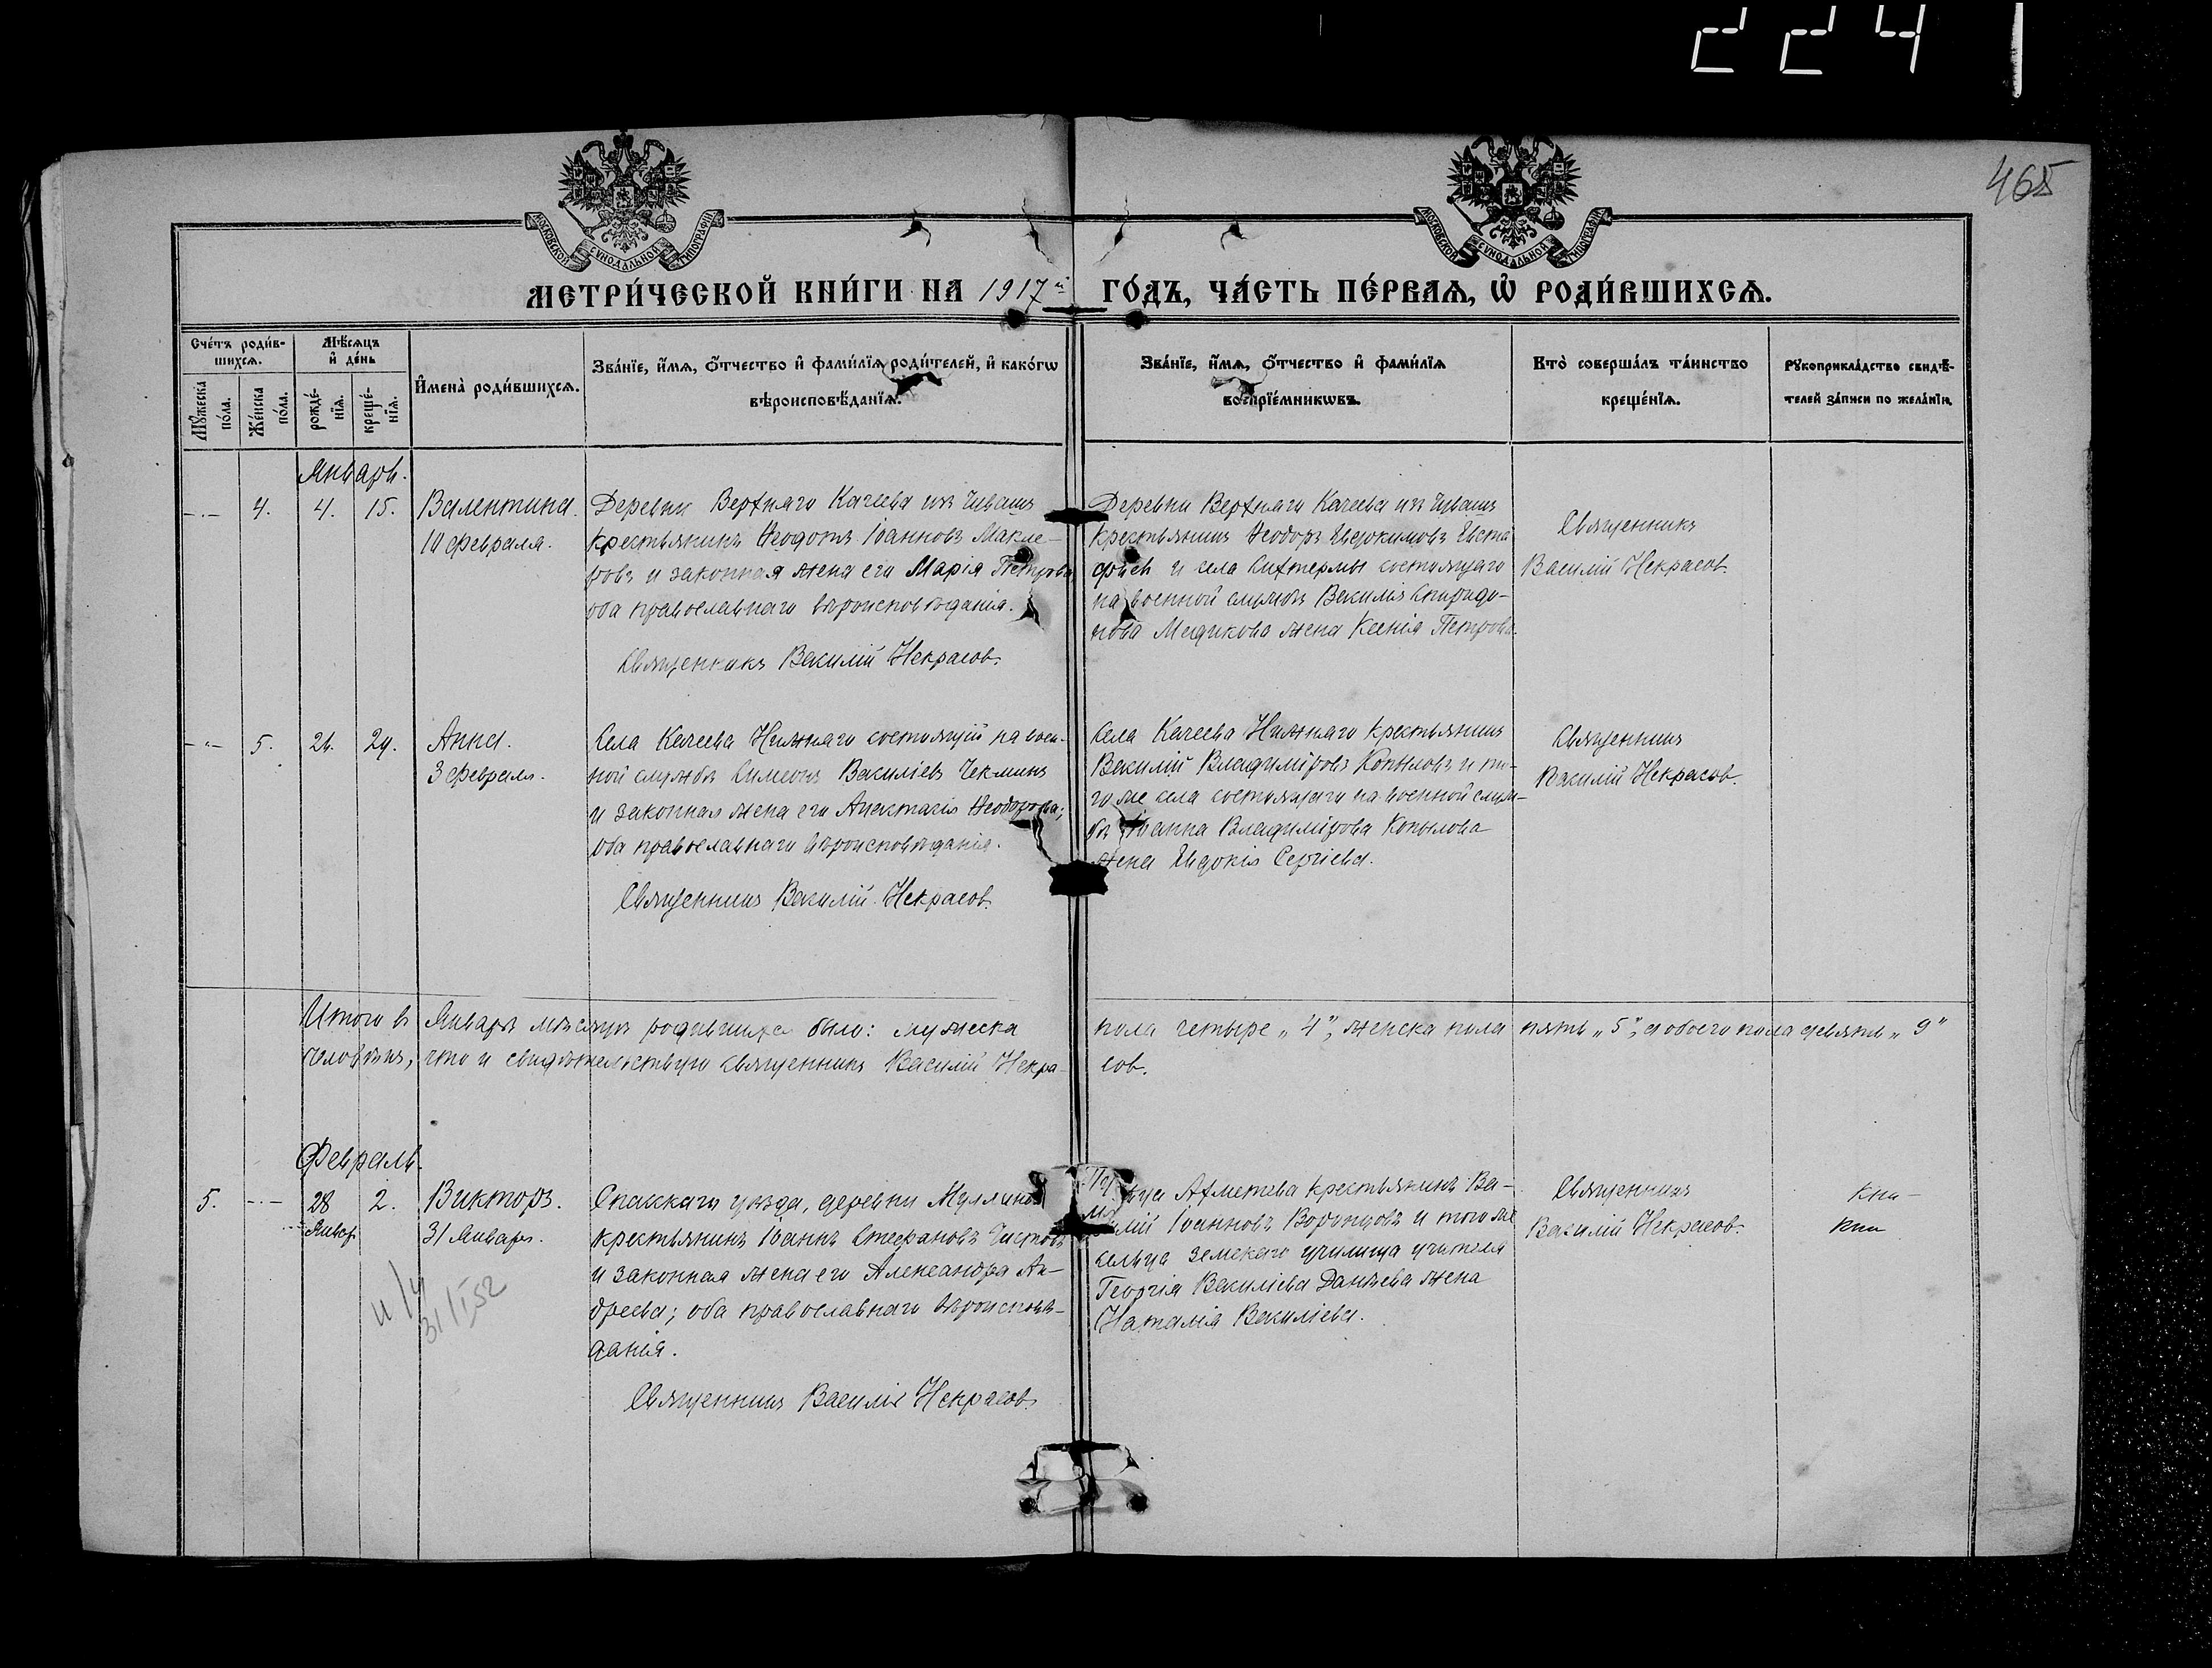 224
465
МОСКОВСКОЙ СѴНОДАЛЬНОЙ ТИПОГРАФІИ
МОСКОВСКОЙ СѴНОДАЛЬНОЙ ТИПОГРАФІИ
МЕТРИ́ЧЕСКОЙ КНИ́ГИ НА 1917й ГО́ДЪ, ЧА́СТЬ ПЕ́РВАѦ, Ѡ҆ РОДИ́ВШИХСѦ.
Сче́тъ роди́в-
шихсѧ.
Мѣ́сѧцъ
и҆ де́нь
Мꙋ́жеска
по́ла.
Же́нска
по́ла.
рожде́-
нїѧ.
креще́-
нїѧ.
И҆мена̀ роди́вшихсѧ.
Зва́нїе, и҆́мѧ, ѻ҆́тчество и҆ фами́лїѧ роди́телей, и҆ како́гѡ
вѣроисповѣ́данїѧ.
Зва́нїе, и҆́мѧ, ѻ҆́тчество и҆ фами́лїѧ
воспрїе́мникѡвъ.
Кто̀ соверша́лъ та́инство
креще́нїѧ.
Рꙋкоприкла́дство свидѣ́-
телей за́писи по жела́нїю.
Январь.
4. 4. 15. Валентина.
10 февраля.
Деревни Верхняго Качеева изъ чувашъ
крестьянинъ Ѳеодотъ Іоанновъ Макле-
ровъ и законная жена его Марія Петрова
оба православнаго вѣроисповѣданія.
Священникъ Василій Некрасов.
Деревни Верхняго Качеева изъ чувашъ
крестьянинъ Ѳеодоръ Евдокимовъ Евста
фьев и села состоящаго
на военной службѣ Василія Спиридо-
нова Медикова жена Ксенія Петрова.
Священникъ
Василій Некрасов.
5. 29. Анна.
3 февраля.
Села Качеева Нижняго состоящій на воен-
ной службѣ Симеонъ Василіевъ Чекминъ
и законная жена его Анастасія Ѳеодорова;
оба православнаго вѣроисповѣданія.
Священникъ Василій Некрасов.
Села Качеева Нижняго крестьянинъ
Василій Владиміровъ Копыловъ и то-
го же села состоящаго на военной служ-
бѣ Іоанна Владимірова Копылова
жена Евдокія Сергіева.
Священникъ
Василій Некрасов.
Итого в Январѣ мѣсяцѣ родившихся было: мужеска пола четыре „4", женска пола пять „5", а обоего пола девять „9"
человѣкъ, что и свидѣтельствую священникъ Василій Некра-
сов.
Февраль.
5. 28 2. Викторъ.
Январ. 31 Января.
Спасскаго уѣзда, деревни
крестьянинъ Іоаннъ Стефановъ Чистовъ
и законная жена его Александра Ан-
дреева; оба православнаго вѣроисповѣ-
данія.
Священникъ Василій Некрасов.
Ахметева крестьянинъ Ва-
силій Іоанновъ Воронцовъ и того же
сельца земскаго училища учителя
Георгія Василіева жена
Наталія Василіева.
Священникъ
Василій Некрасов.
31/I 52